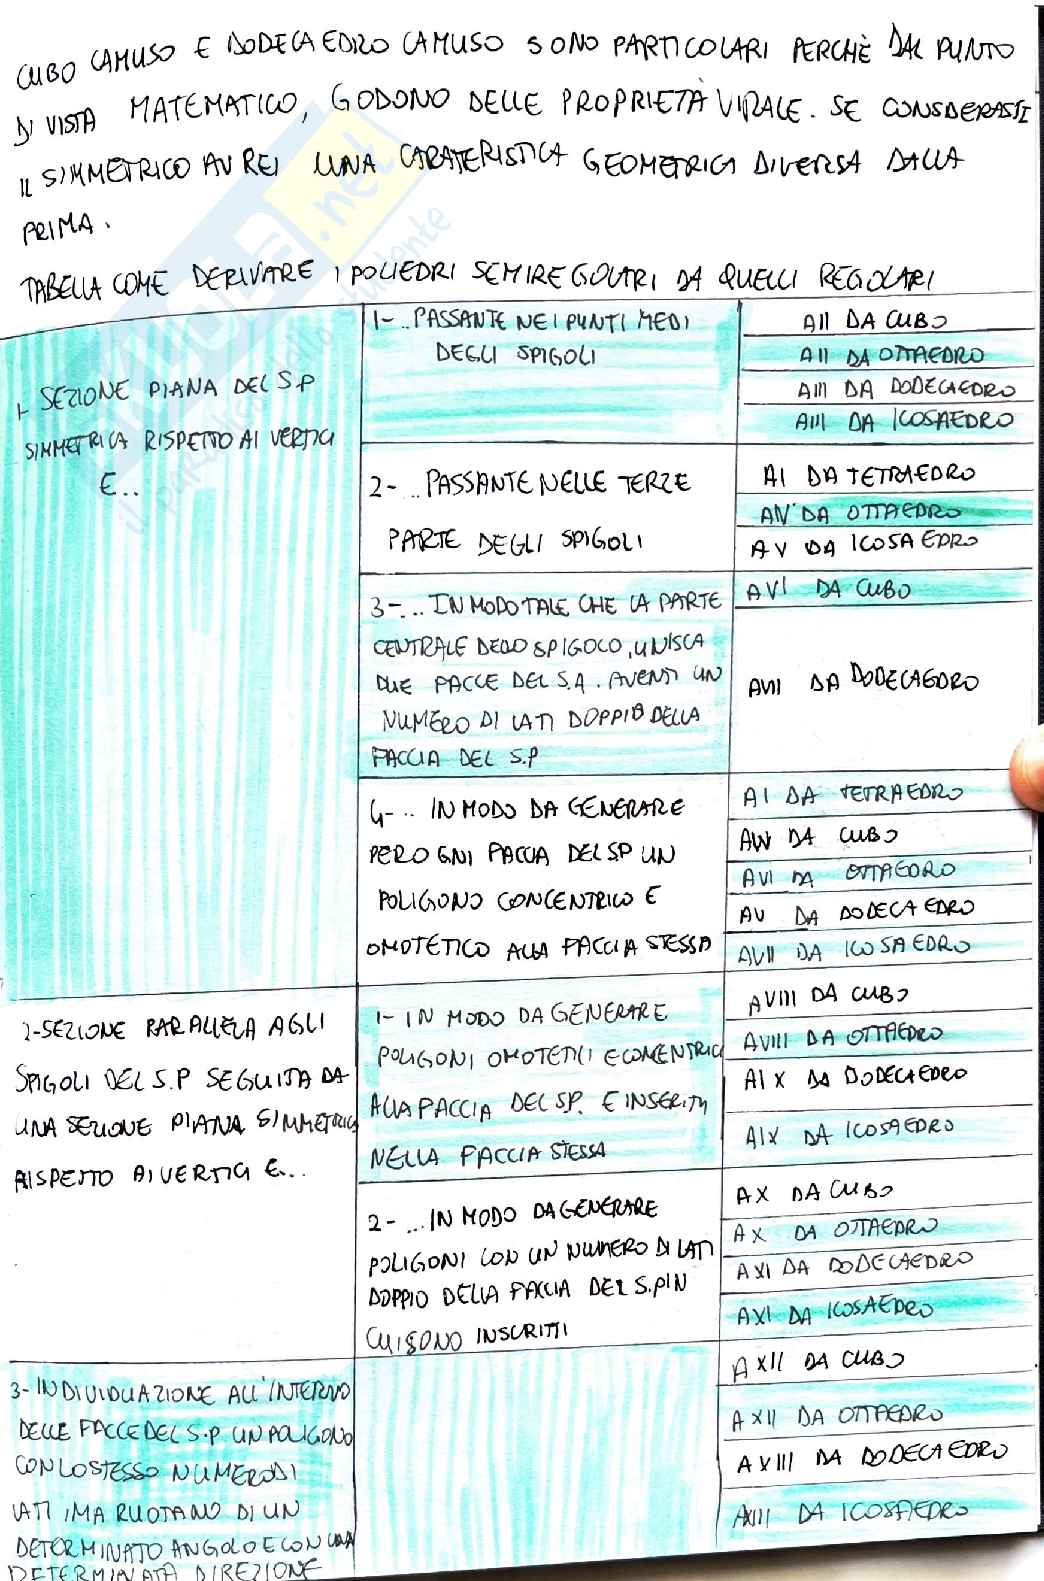 CUBO CAMUSO E DODECAEDRO CAMUSO SONO PARTICOLARI PERCHÈ DAL PUNTO
DI VISTA MATEMATICO, GODONO DELLE PROPRIETÀ VIRALE. SE CONSIDERASSI
IL SIMMETRICO AVREI UNA CARATERISTICA GEOMETRICA DIVERSA DALLA
PRIMA.
TABELLA COME DERIVARE I POLIEDRI SEMIREGOLARI DA QUELLI REGOLARI
1- SEZIONE PIANA DEL S.P
SIMMETRICA RISPETTO AI VERTICI
E...
1- .. PASSANTE NEI PUNTI MEDI
DEGLI SPIGOLI
AII DA CUBO
AII DA OTTAEDRO
AIII DA DODECAEDRO
AIII DA ICOSAEDRO
2- .. PASSANTE NELLE TERZE
PARTE DEGLI SPIGOLI
AI DA TETRAEDRO
AIV DA OTTAEDRO
AV DA ICOSAEDRO
3- ... IN MODO TALE CHE LA PARTE
CENTRALE DELLO SPIGOLO, UNISCA
DUE FACCE DEL S.A. AVENTI UN
NUMERO DI LATI DOPPIO DELLA
FACCIA DEL S.P
AVI DA CUBO
AVII DA DODECAEDRO
4- .. IN MODO DA GENERARE
PER OGNI FACCIA DEL SP UN
POLIGONO CONCENTRICO E
OMOTETICO ALLA FACCIA STESSA
AI DA TETRAEDRO
AIV DA CUBO
AVI DA OTTAEDRO
AV DA DODECAEDRO
AVII DA ICOSAEDRO
2- SEZIONE PARALLELA AGLI
SPIGOLI DEL S.P SEGUITA DA
UNA SEZIONE PIANA SIMMETRICA
RISPETTO AI VERTICI E...
1- IN MODO DA GENERARE
POLIGONI OMOTETICI E CONCENTRICI
ALLA FACCIA DEL SP. E INSERITI
NELLA FACCIA STESSA
AVIII DA CUBO
AVIII DA OTTAEDRO
AIX DA DODECAEDRO
AIX DA ICOSAEDRO
2- ... IN MODO DA GENERARE
POLIGONI CON UN NUMERO DI LATI
DOPPIO DELLA FACCIA DEL S.P IN
CUI SONO INSCRITTI
AX DA CUBO
AX DA OTTAEDRO
AXI DA DODECAEDRO
AXI DA ICOSAEDRO
3- INDIVIDUAZIONE ALL'INTERNO
DELLE FACCE DEL S.P UN POLIGONO
CON LO STESSO NUMERO DI
LATI, MA RUOTANO DI UN
DETERMINATO ANGOLO E CON UNA
DETERMINATA DIREZIONE
AXII DA CUBO
AXII DA OTTAEDRO
AXIII DA DODECAEDRO
AXIII DA ICOSAEDRO